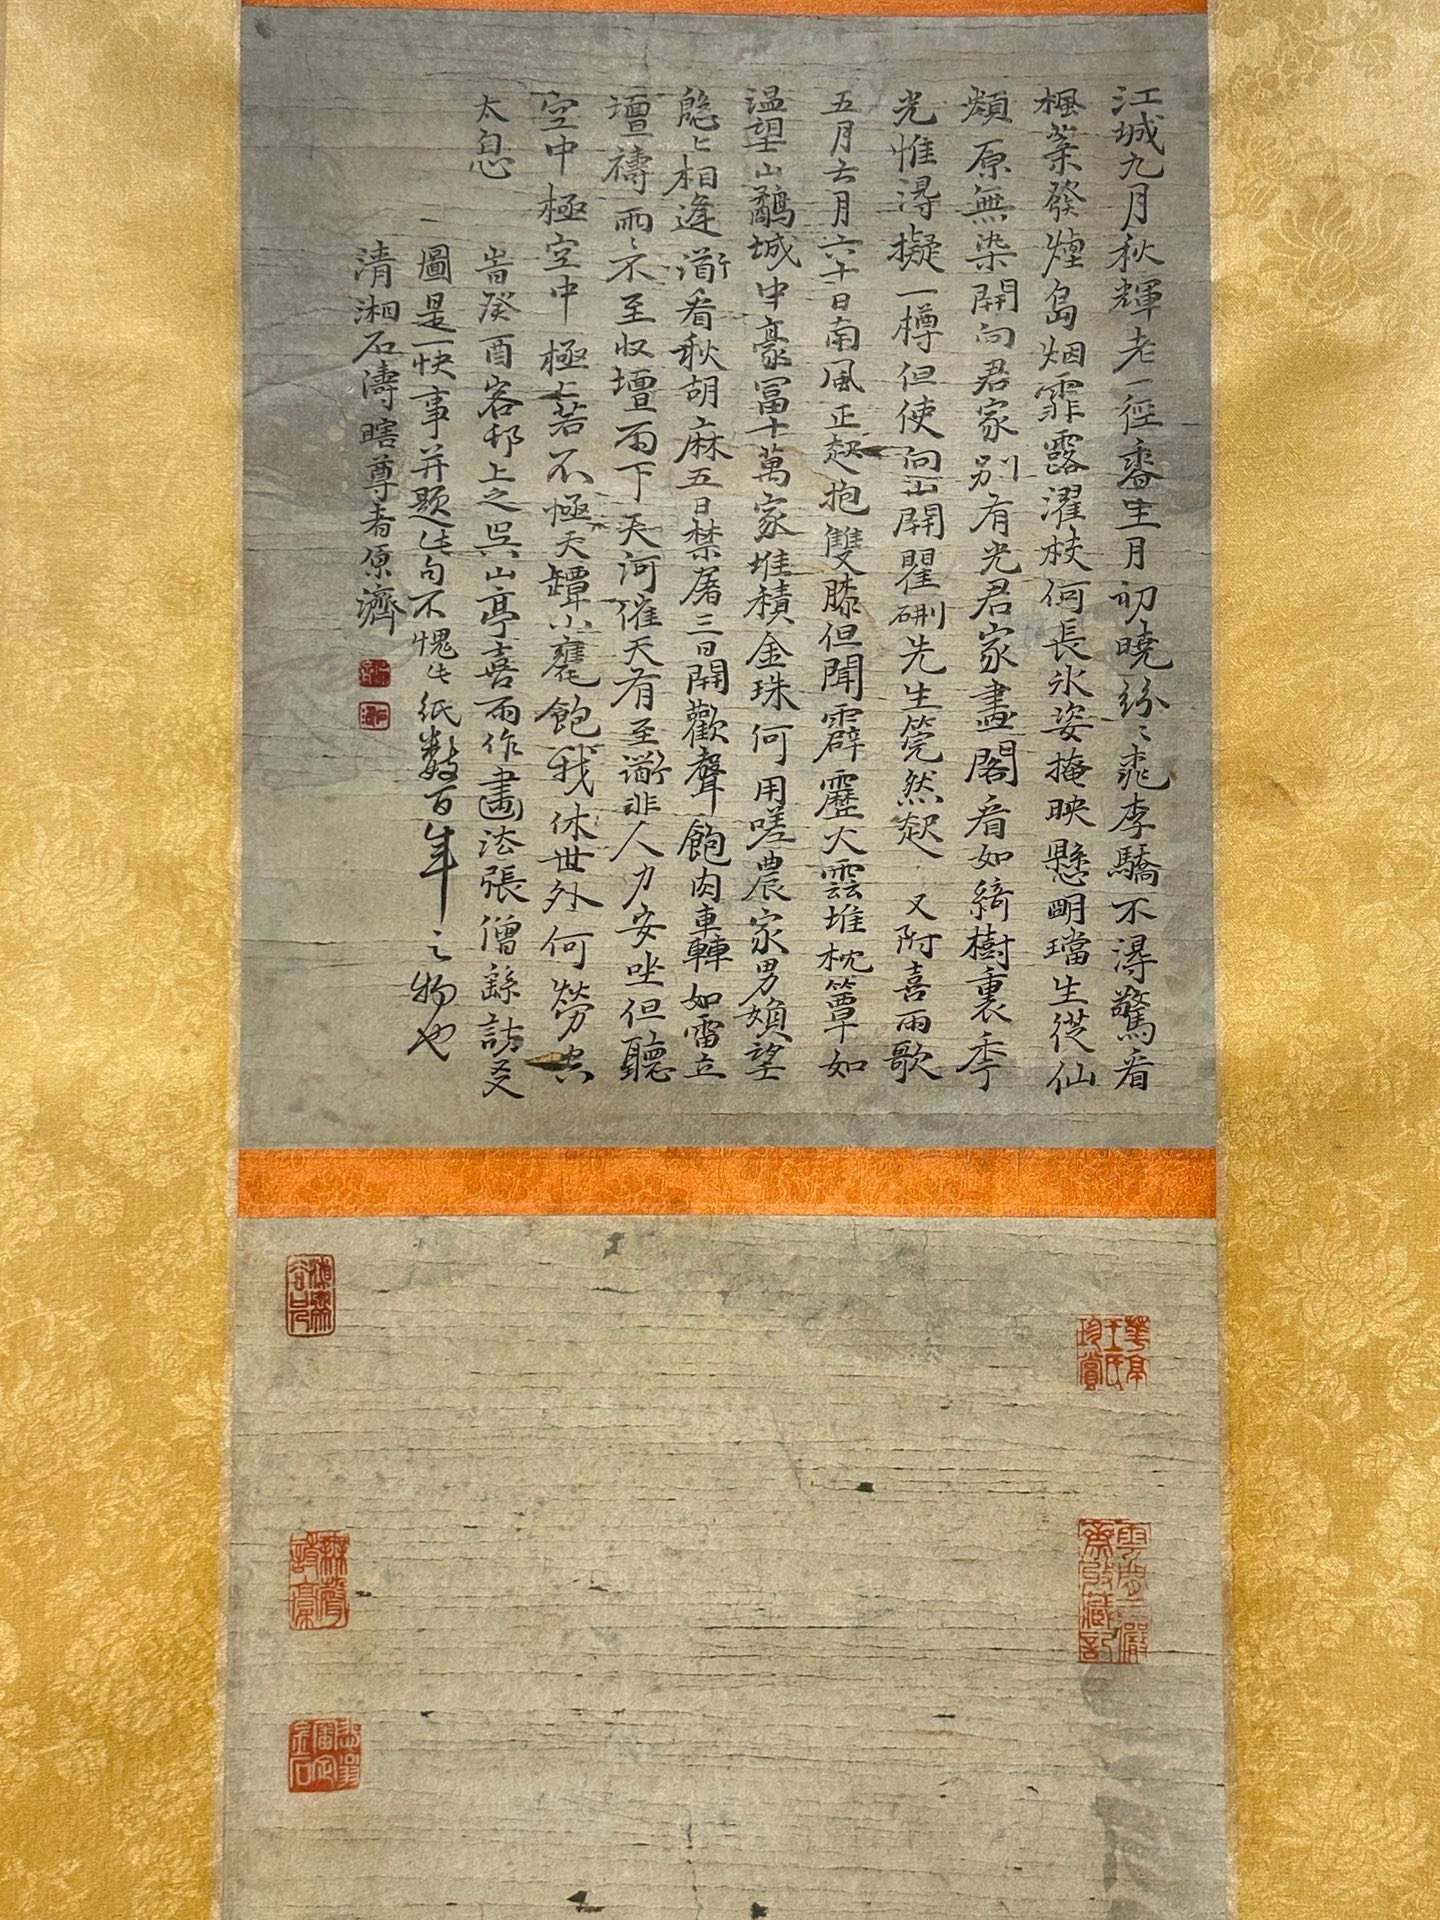 江城九月秋輝老一徑香生月初曉紛〻桃李驕不淂驚看
楓葉發煙島烟霏露濯枝何長氷姿掩映懸明璫生從仙
頰原無染開向君家別有光君家畫閣看如綺樹裏季
光惟淂擬一樽但使向山開瞿硎先生筦然起 又附喜雨歌
五月六月六十日南風正起抱雙膝但聞霹靂火雲堆枕簟如
温望山鷸城中豪冨十萬家堆積金珠何用嗟農家男婦望
慇〻相逢衟看秋胡麻五日禁屠三日開歡聲飽肉車轉如雷立
壇禱雨〻不至収壇雨下天河催天有至衟非人力安坐但聽
空中極空中極〻若不極天罈小甕飽我休世外何勞共
太息
旹癸酉客邗上之吳山亭喜雨作畫法張僧繇訪友
一圖是一快事并題此句不愧此紙數百年之物也
清湘石濤瞎尊者原濟
華亭王氏珍賞